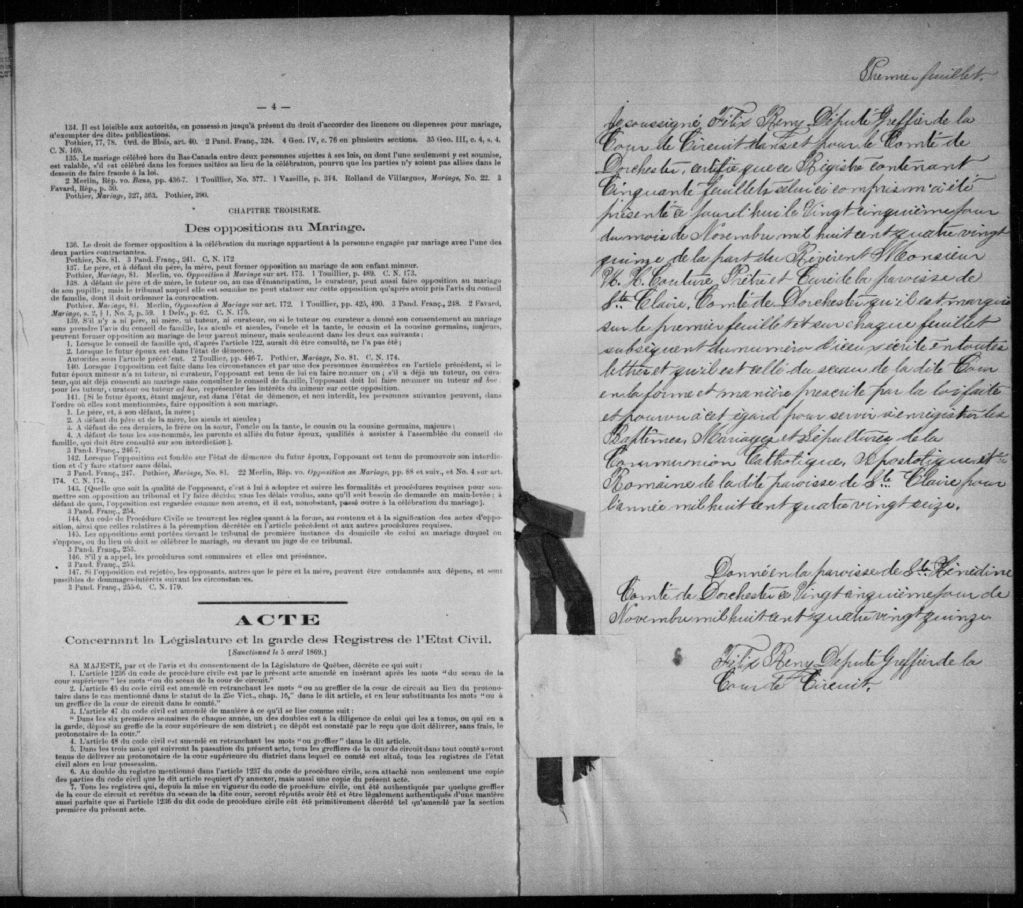 — 4 —
134. Il est loisible aux autorités, en possession jusqu'à présent du droit d'accorder des licences ou dispenses pour mariage,
d'exempter des dites publications.
Pothier, 77, 78. Ord. de Blois, art. 40. 2 Pand. Franç., 324. 4 Geo. IV, c. 76 en plusieurs sections. 35 Geo. III, c. 4, s. 4.
C. N. 169.
135. Le mariage célébré hors du Bas-Canada entre deux personnes sujettes à ses lois, ou dont l'une seulement y est soumise,
est valable, s'il est célébré dans les formes usitées au lieu de la célébration, pourvu que les parties n'y soient pas allées dans le
dessein de faire fraude à la loi.
2 Merlin, Rép. vo. Bans, pp. 436-7. 1 Touillier, No. 577. 1 Vazeille, p. 314. Rolland de Villargues, Mariage, No. 22. 3
Favard, Rép., p. 50.
Pothier, Mariage, 327, 363. Pothier, 390.
CHAPITRE TROISIEME.
Des oppositions au Mariage.
136. Le droit de former opposition à la célébration du mariage appartient à la personne engagée par mariage avec l'une des
deux parties contractantes.
Pothier, No. 81. 3 Pand. Franç., 241. C. N. 172
137. Le père, et à défaut du père, la mère, peut former opposition au mariage de son enfant mineur.
Pothier, Mariage, 81. Merlin, vo. Opposition à Mariage sur art. 173. 1 Touillier, p. 489. C. N. 173.
138. A défaut de père et de mère, le tuteur ou, au cas d'émancipation, le curateur, peut aussi faire opposition au mariage
de son pupille; mais le tribunal auquel elle est soumise ne peut statuer sur cette opposition qu'après avoir pris l'avis du conseil
de famille, dont il doit ordonner la convocation.
Pothier, Mariage, 81. Merlin, Opposition à Mariage sur art. 172. 1 Touillier, pp. 425, 490. 3 Pand. Franç., 248. 2 Favard,
Mariage, s. 2, § 1, No. 3, p. 59. 1 Delv., p. 62. C. N. 175.
139. S'il n'y a ni père, ni mère, ni tuteur, ni curateur, ou si le tuteur ou curateur a donné son consentement au mariage
sans prendre l'avis du conseil de famille, les aïeuls et aïeules, l'oncle et la tante, le cousin et la cousine germains, majeurs,
peuvent former opposition au mariage de leur parent mineur, mais seulement dans les deux cas suivants:
1. Lorsque le conseil de famille qui, d'après l'article 122, aurait dû être consulté, ne l'a pas été;
2. Lorsque le futur époux est dans l'état de démence.
Autorités sous l'article précédent. 2 Touillier, pp. 446-7. Pothier, Mariage, No. 81. C. N. 174.
140. Lorsque l'opposition est faite dans les circonstances et par une des personnes énumérées en l'article précédent, si le
futur époux mineur n'a ni tuteur, ni curateur, l'opposant est tenu de lui en faire nommer un; s'il a déjà un tuteur, ou cura-
teur, qui ait déjà consenti au mariage sans consulter le conseil de famille, l'opposant doit lui faire nommer un tuteur ad hoc
pour les tuteur, curateur ou tuteur ad hoc, représenter les intérêts du mineur sur cette opposition.
141. [Si le futur époux, étant majeur, est dans l'état de démence, et non interdit, les personnes suivantes peuvent, dans
l'ordre où elles sont mentionnées, faire opposition à son mariage.
1. Le père, et, à son défaut, la mère;
2. A défaut du père et de la mère, les aïeuls et aïeules;
3. A défaut de ces derniers, le frère ou la sœur, l'oncle ou la tante, le cousin ou la cousine germains, majeurs;
4. A défaut de tous les sus-nommés, les parents et alliés du futur époux, qualifiés à assister à l'assemblée du conseil de
famille, qui doit être consulté sur son interdiction].
3 Pand. Franç., 246-7.
142. Lorsque l'opposition est fondée sur l'état de démence du futur époux, l'opposant est tenu de promouvoir son interdic-
tion et d'y faire statuer sans délai.
3 Pand. Franç., 247. Pothier, Mariage, No. 81. 22 Merlin, Rép. vo. Opposition au Mariage, pp. 88 et suiv., et No. 4 sur art.
174. C. N. 174.
143. [Quelle que soit la qualité de l'opposant, c'est à lui à adopter et suivre les formalités et procédures requises pour sou-
mettre son opposition au tribunal et l'y faire décider sous les délais voulus, sans qu'il soit besoin de demande en main-levée; à
défaut de quoi, l'opposition est regardée comme non avenue, et il est, nonobstant, passé outre à la célébration du mariage].
3 Pand. Franç., 254.
144. Au code de Procédure Civile se trouvent les règles quant à la forme, au contenu et à la signification des actes d'oppo-
sition, ainsi que celles relatives à la péremption décrétée en l'article précédent et aux autres procédures requises.
145. Les oppositions sont portées devant le tribunal de première instance du domicile de celui au mariage duquel on
s'oppose, ou du lieu où doit se célébrer le mariage, ou devant un juge de ce tribunal.
3 Pand. Franç., 253.
146. S'il y a appel, les procédures sont sommaires et elles ont préséance.
3 Pand. Franç., 253.
147. Si l'opposition est rejetée, les opposants, autres que le père et la mère, peuvent être condamnés aux dépens, et sont
passibles de dommages-intérêts suivant les circonstances.
3 Pand. Franç., 255-6. C. N. 179.
ACTE
Concernant la Législature et la garde des Registres de l'Etat Civil.
[Sanctionné le 5 avril 1869.]
SA MAJESTÉ, par et de l'avis et du consentement de la Législature de Québec, décrète ce qui suit:
1. L'article 1236 du code de procédure civile est par le présent acte amendé en insérant après les mots "du sceau de la
cour supérieure" les mots "ou du sceau de la cour de circuit."
2. L'article 45 du code civil est amendé en retranchant les mots "ou au greffier de la cour de circuit au lieu du protono-
taire dans le cas mentionné dans le statut de la 25e Vict., chap. 16," dans le dit article, et en leur substituant les mots "ou à
un greffier de la cour de circuit dans le comté."
3. L'article 47 du code civil est amendé de manière à ce qu'il se lise comme suit:
" Dans les six premières semaines de chaque année, un des doubles est à la diligence de celui qui les a tenus, ou qui en a
la garde, déposé au greffe de la cour supérieure de son district; ce dépôt est constaté par le reçu que doit délivrer, sans frais, le
protonotaire de la cour."
4. L'article 48 du code civil est amendé en retranchant les mots "ou greffier" dans le dit article.
5. Dans les trois mois qui suivront la passation du présent acte, tous les greffiers de la cour de circuit dans tout comté seront
tenus de délivrer au protonotaire de la cour supérieure du district dans lequel ce comté est situé, tous les registres de l'état
civil alors en leur possession.
6. Au double du registre mentionné dans l'article 1237 du code de procédure civile, sera attaché non seulement une copie
des parties du code civil que le dit article requiert d'y annexer, mais aussi une copie du présent acte.
7. Tous les registres qui, depuis la mise en vigueur du code de procédure civile, ont été authentiqués par quelque greffier
de la cour de circuit et revêtus du sceau de la dite cour, seront réputés avoir été et être légalement authentiqués d'une manière
aussi parfaite que si l'article 1236 du dit code de procédure civile eût été primitivement décrété tel qu'amendé par la section
première du présent acte.
Premier feuillet.
Je soussigné, Félix Remy, Député Greffier de la
Cour de Circuit dans et pour le Comté de
Dorchester, certifie que ce Régistre contenant
Cinquante feuillets celui ci compris m'a été
présenté ce jourd'hui le Vingt cinquième jour
du mois de Novembre mil huit cent quatre vingt
quinze de la part du Révérent Monsieur
H. Couture, Prêtre et Curé de la paroisse de
Ste. Claire, Comté de Dorchester, qu'il est marqué
sur le premier feuillet et sur chaque feuillet
subséquent du numéro d'iceux écrit en toutes
lettres et qu'il est scellé du sceau de la dite Cour
en la forme et manière prescrite par la loi faite
et pourvu à cet égard pour servir à enregistrer les
Baptêmes, Mariages et Sépultures de la
Communion Catholique, Apostolique et
Romaine de la dite paroisse de Ste. Claire pour
l'année mil huit cent quatre vingt seize.
Donné en la paroisse de Ste. Hénédine
Comté de Dorchester ce Vingt cinquième jour de
Novembre mil huit cent quatre vingt quinze
Félix Remy Député Greffier de la
Cour de Circuit.